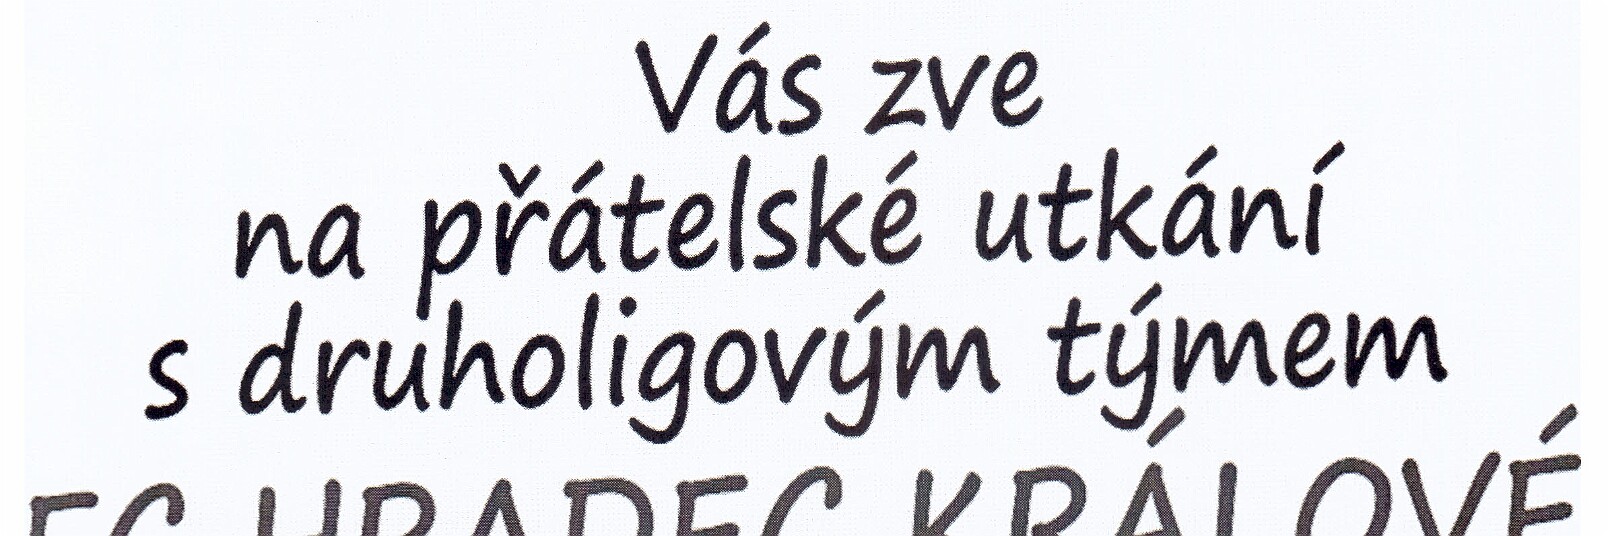 Vás zve
na přátelské utkání
s druholigovým týmem
FC HRADEC KRÁLOVÉ